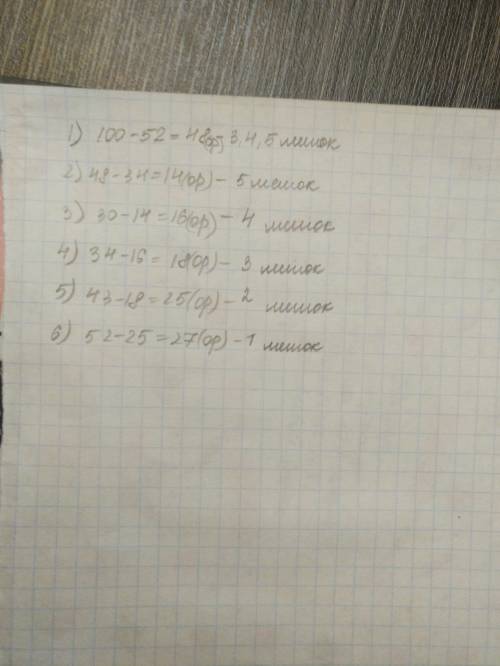 1) 100-52=48(ор) 3,4,5 мешок
2) 48-34=14(ор) - 5 мешок
3) 30-14=16(ор) - 4 мешок
4) 34-16=18(ор) - 3 мешок
5) 43-18=25(ор) - 2 мешок
6) 52-25=27(ор) - 1 мешок